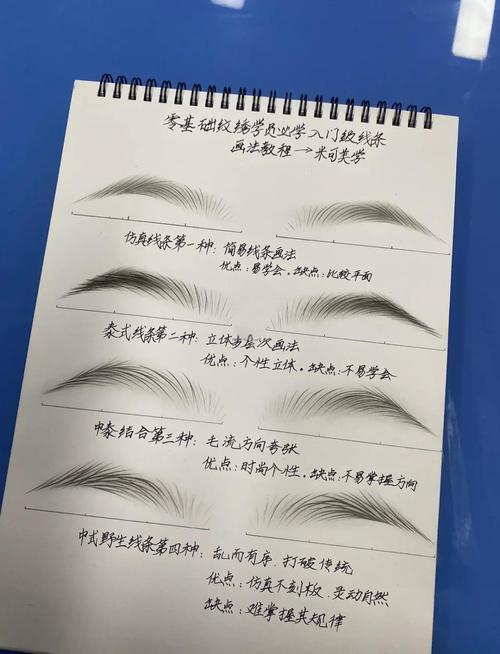 零基础纹绣学员必学入门级线条
画法教程→米可美学
仿真线条第一种：简易线条画法
优点：易学会。缺点：比较平面
泰式线条第二种：立体多层次画法
优点：个性立体。缺点：不易学会
中泰结合第三种：毛流方向夸张
优点：时尚个性。缺点：不易掌握方向
中式野生线条第四种：乱而有序．打破传统
优点：仿真不刻板．灵动自然
缺点：难掌握其规律